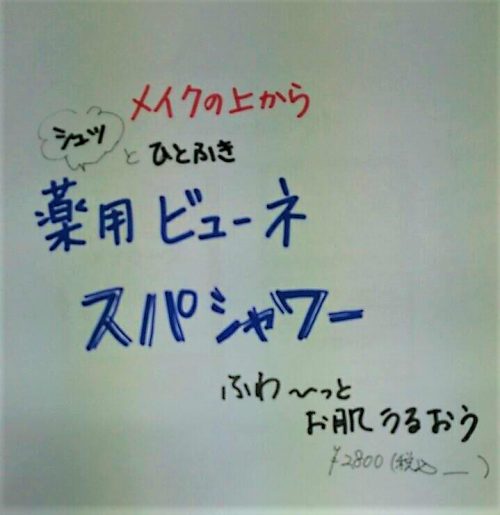 メイクの上から
シュッ
とひとふき
薬用ビューネ
スパシャワー
ふわ〜っと
お肌うるおう
¥2800(税込 __ )